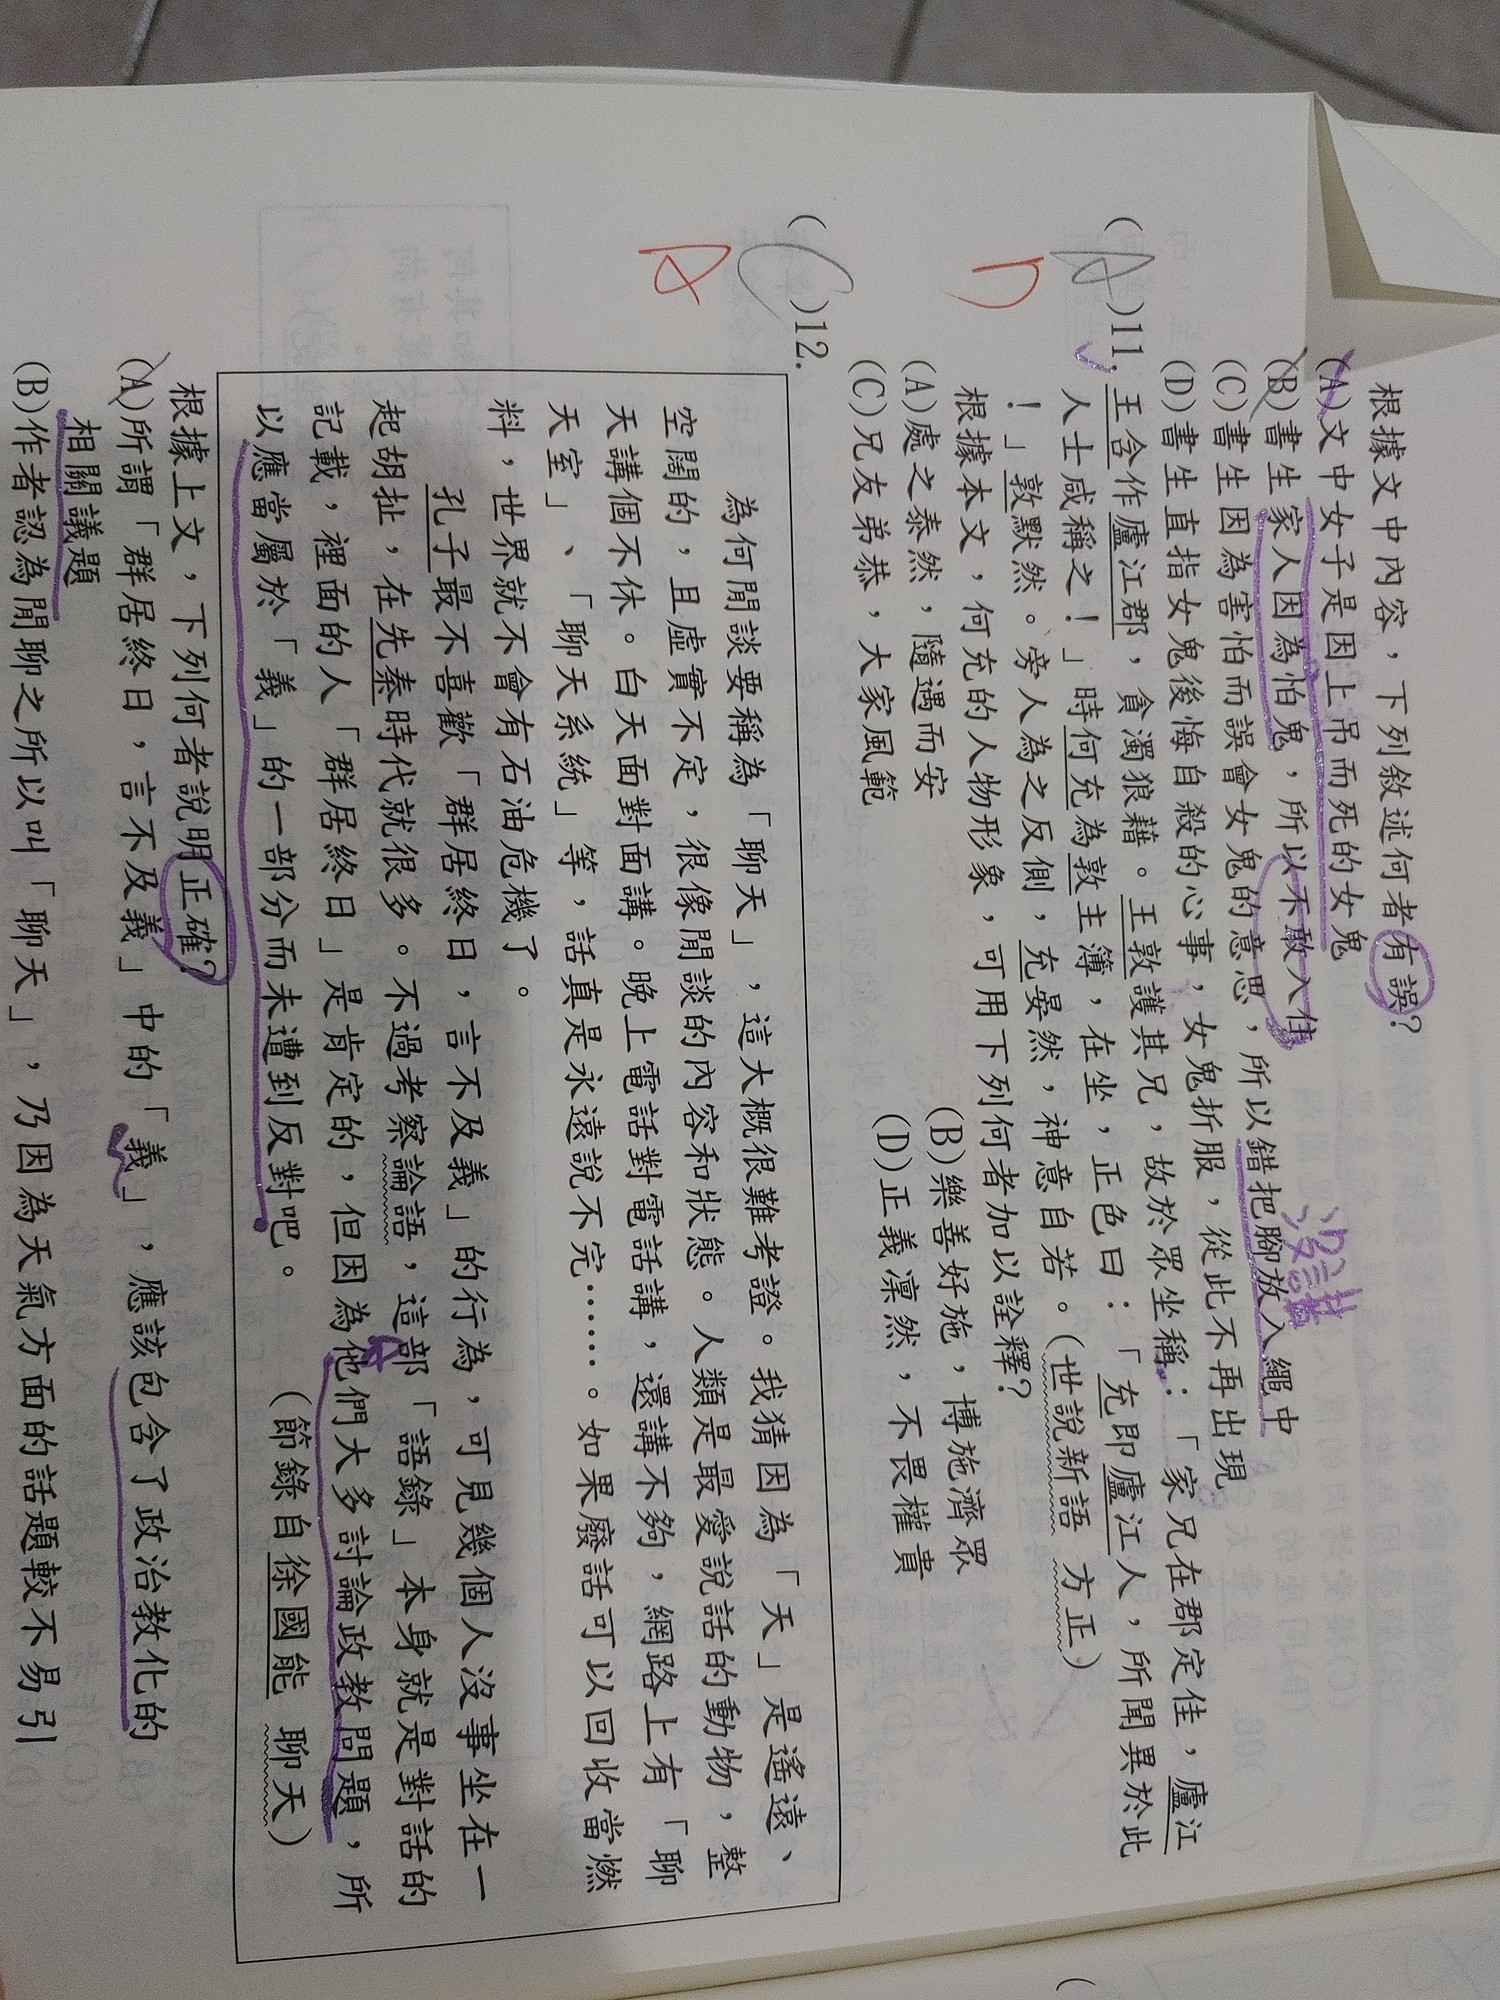 根據文中內容，下列敘述何者有誤？
(A)文中女子是因上吊而死的女鬼
(B)書生家人因為怕鬼，所以不敢入住
(C)書生因為害怕而誤會女鬼的意思，所以錯把腳放入繩中
沒講
(D)書生直指女鬼後悔自殺的心事，女鬼折服，從此不再出現
(A)11.王含作廬江郡，貪濁狼藉。王敦護其兄，故於眾坐稱：「家兄在郡定佳，廬江
人士咸稱之！」時何充為敦主簿，在坐，正色曰：「充即廬江人，所聞異於此
！」敦默然。旁人為之反側，充晏然，神意自若。(世說新語 方正)
D
根據本文，何充的人物形象，可用下列何者加以詮釋？
(A)處之泰然，隨遇而安 (B)樂善好施，博施濟眾
(C)兄友弟恭，大家風範 (D)正義凜然，不畏權貴
(C)12.
A
為何閒談要稱為「聊天」，這大概很難考證。我猜因為「天」是遙遠、
空闊的，且虛實不定，很像閒談的內容和狀態。人類是最愛說話的動物，整
天講個不休。白天面對面講。晚上電話對電話講，還講不夠，網路上有「聊
天室」、「聊天系統」等，話真是永遠說不完……。如果廢話可以回收當燃
料，世界就不會有石油危機了。
孔子最不喜歡「群居終日，言不及義」的行為，可見幾個人沒事坐在一
起胡扯，在先秦時代就很多。不過考察論語，這部「語錄」本身就是對話的
記載，裡面的人「群居終日」是肯定的，但因為他們大多討論政教問題，所
以應當屬於「義」的一部分而未遭到反對吧。 (節錄自徐國能 聊天)
根據上文，下列何者說明正確？
(A)所謂「群居終日，言不及義」中的「義」，應該包含了政治教化的
相關議題
(B)作者認為閒聊之所以叫「聊天」，乃因為天氣方面的話題較不易引